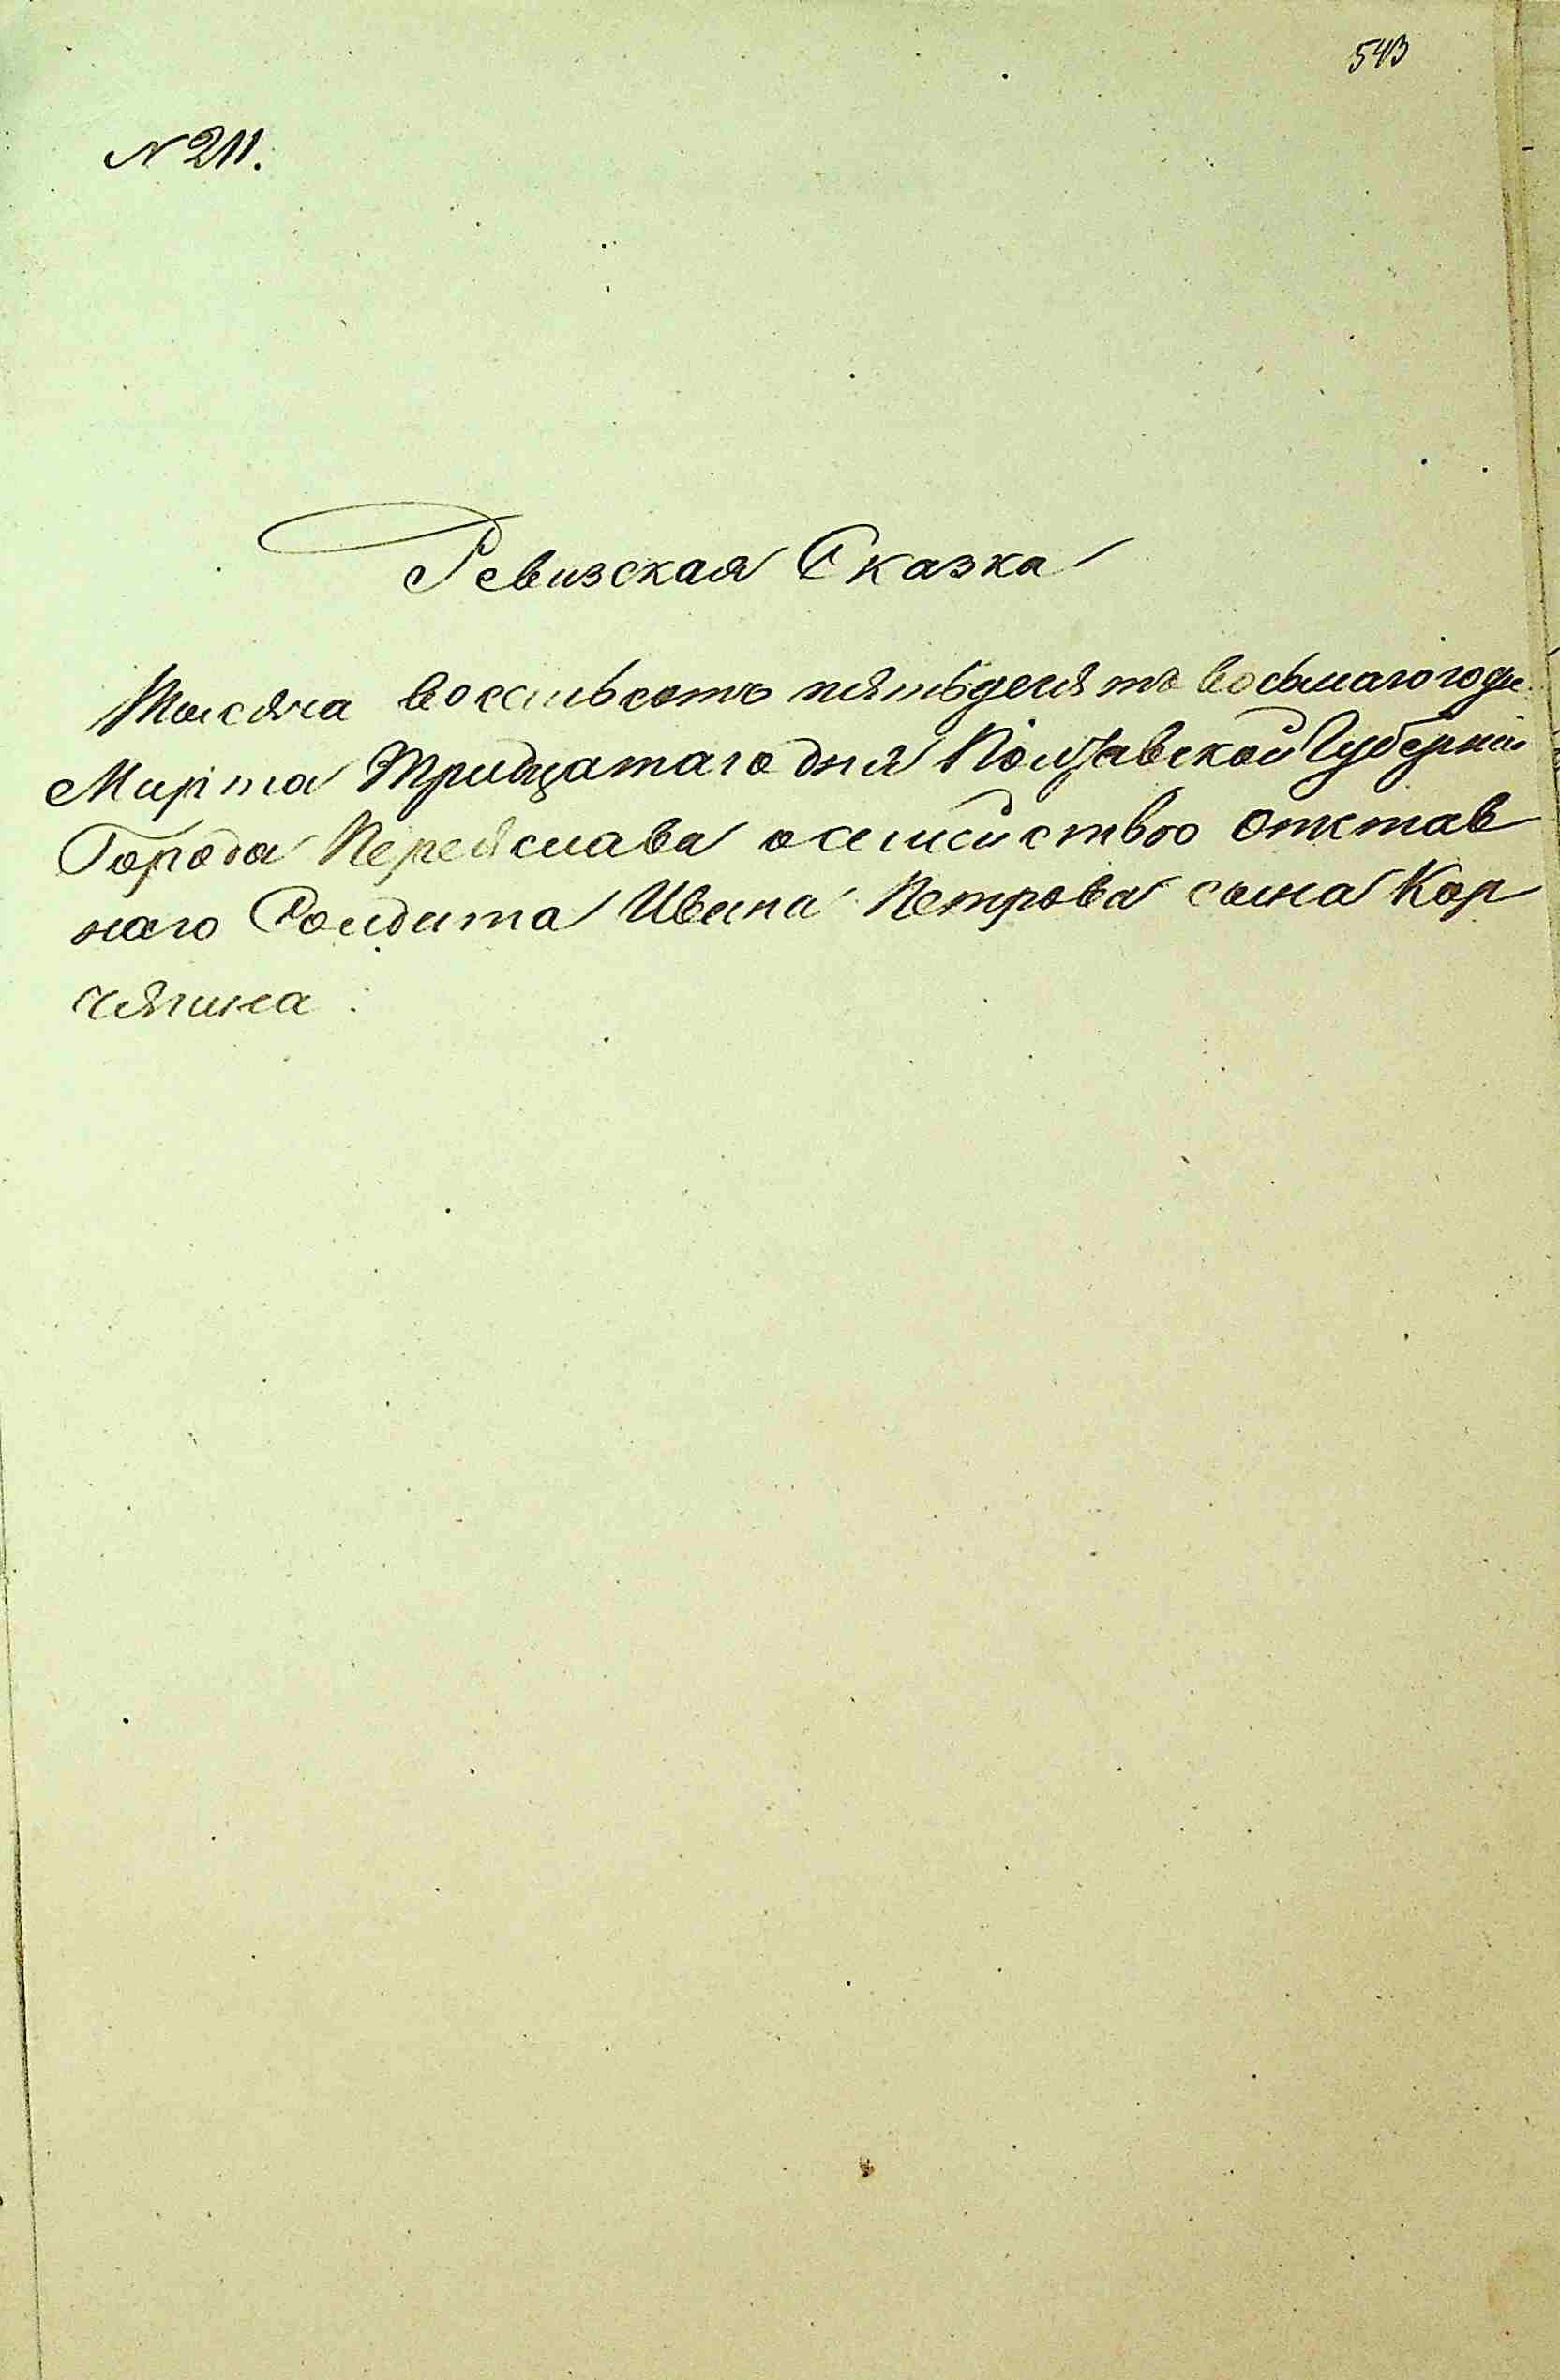 543
№ 211.
Ревизская Сказка
Тысяча восемьсотъ пятьдесятъ восьмаго года
Марта Тридцатаго дня Полтавской Губерніи
Города Переяслава о семейство Отстав
наго Солдата Ивана Петрова сына Кор
чягина